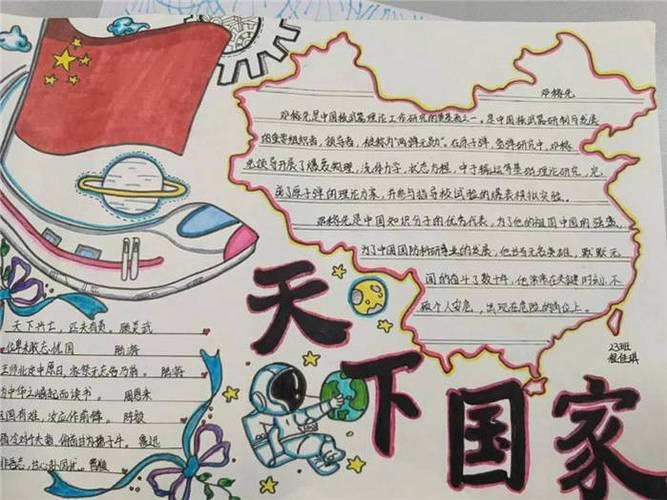 邓稼先
邓稼先是中国核武器理论工作研究的奠基者之一。是中国核武器研制与发展
的重要组织者,领导者,被称为"两弹元勋"。在原子弹、氢弹研究中,邓稼
先领导开展了爆轰物理,流体力学,状态方程,中子输运等基础理论研究,完
成了原子弹的理论方案,并参与指导核试验的爆轰模拟实验。
邓稼先是中国知识分子的优秀代表,为了他的祖国中国的强盛,
为了中国国防科研事业的发展,他当无名英雄,默默无
闻的奋斗了数十年,他常常在关键时刻,不
顾个人安危,出现在危险的岗位上。
23班
天下国家
天下兴亡,匹夫有责 顾炎武
位卑未敢忘忧国 陆游
王师北定中原日,家祭无忘告乃翁。 陆游
为中华之崛起而读书。 周恩来
祖国有难,汝应作前锋。 陈毅
横眉冷对千夫指,俯首甘为孺子牛。鲁迅